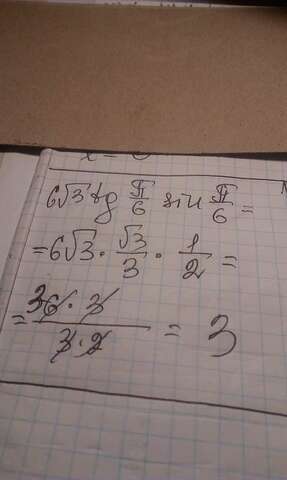 6√3 tg π/6 sin π/6 =
= 6√3 · √3/3 · 1/2 =
= 36 · 3/3 · 2 = 3